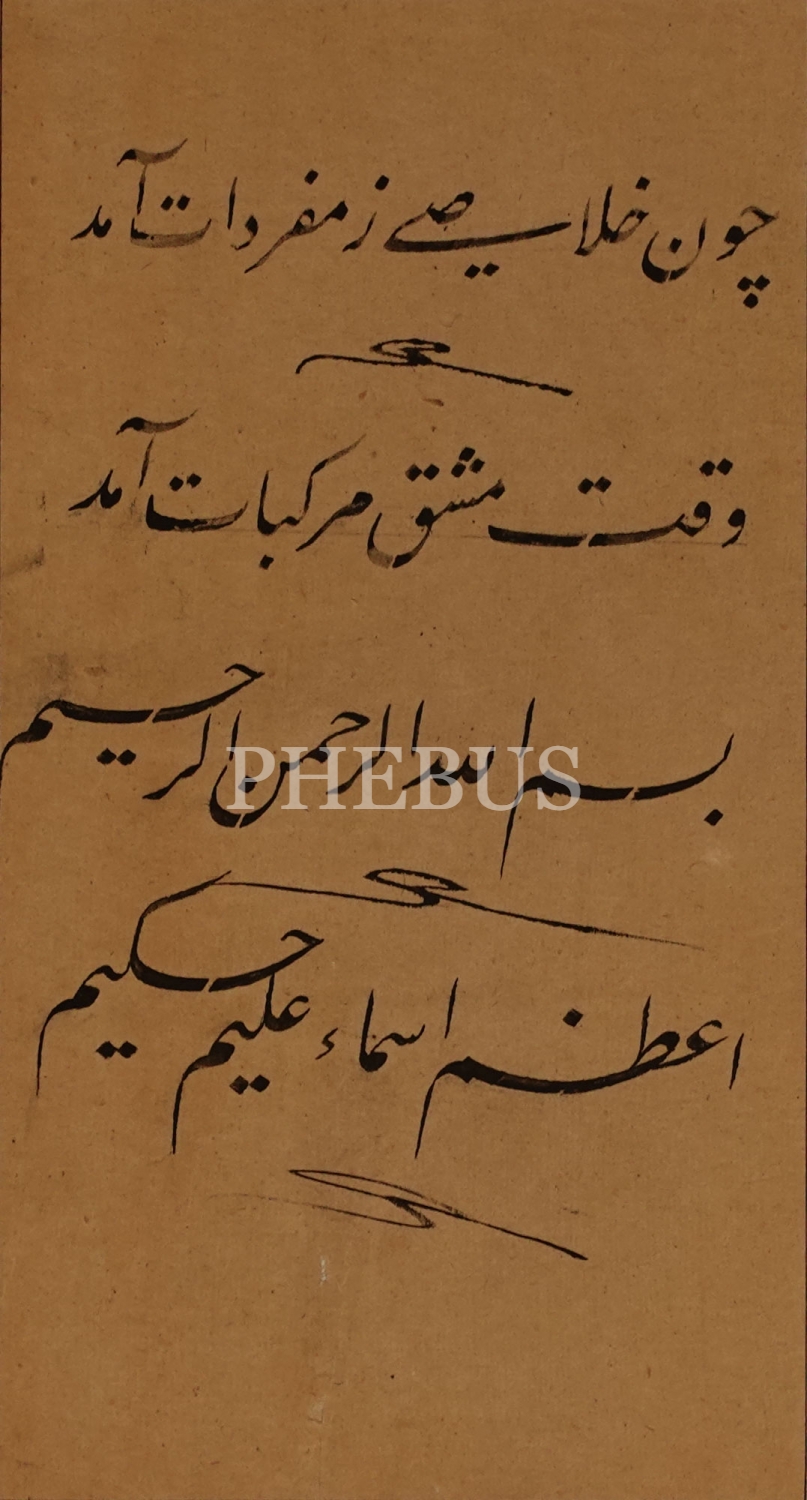 چون خلاصی ز مفردات آمد
وقت مشق مرکبات آمد
بسم الله الرحمن الرحیم
PHEBUS
اعظم اسماء علیم حکیم